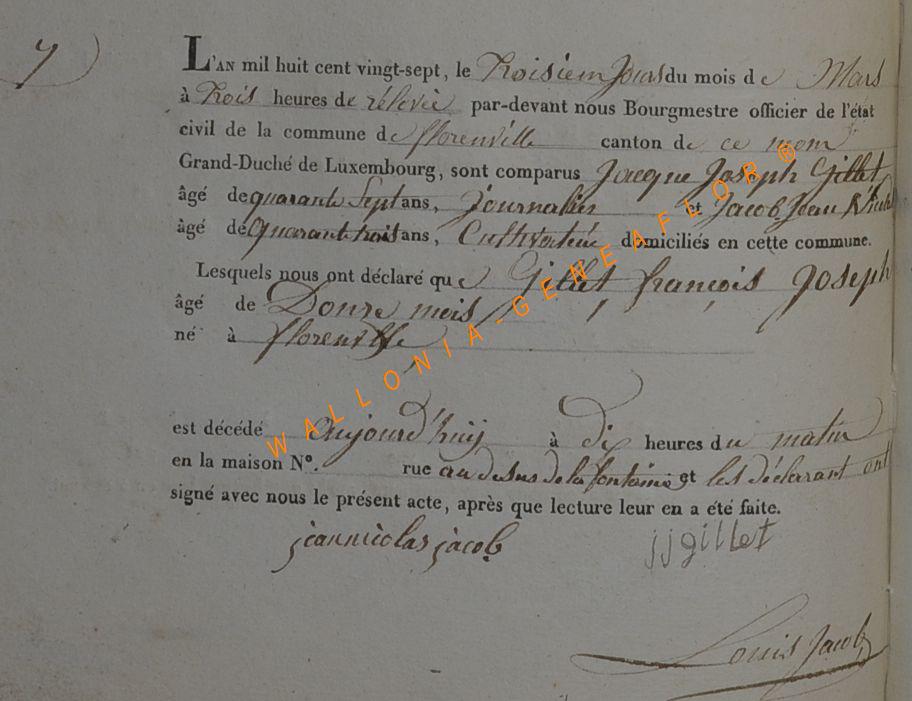 7
L'AN mil huit cent vingt-sept, le troisiem Jours du mois de Mars
à trois heures de rélevée par-devant nous Bourgmestre officier de l'état
civil de la commune de florenville canton de ce nom
Grand-Duché de Luxembourg, sont comparus Jacque Joseph Gillet
âgé de quarante Sept ans, Journalier et Jacob Jean
âgé de Quarant trois ans, Cultivateur domiciliés en cette commune.
Lesquels nous ont déclaré que Gillet, françois Joseph
âgé de Douze mois
né à florenville
est décédé aujourd'huij à dix heures du matin
en la maison N°. rue au desus de la fontaine et les déclarant ont
signé avec nous le présent acte, après que lecture leur en a été faite.
jeannicolas jacob jjgillet
Louis Jacob
WALLONIA-GENEAFLOR ®